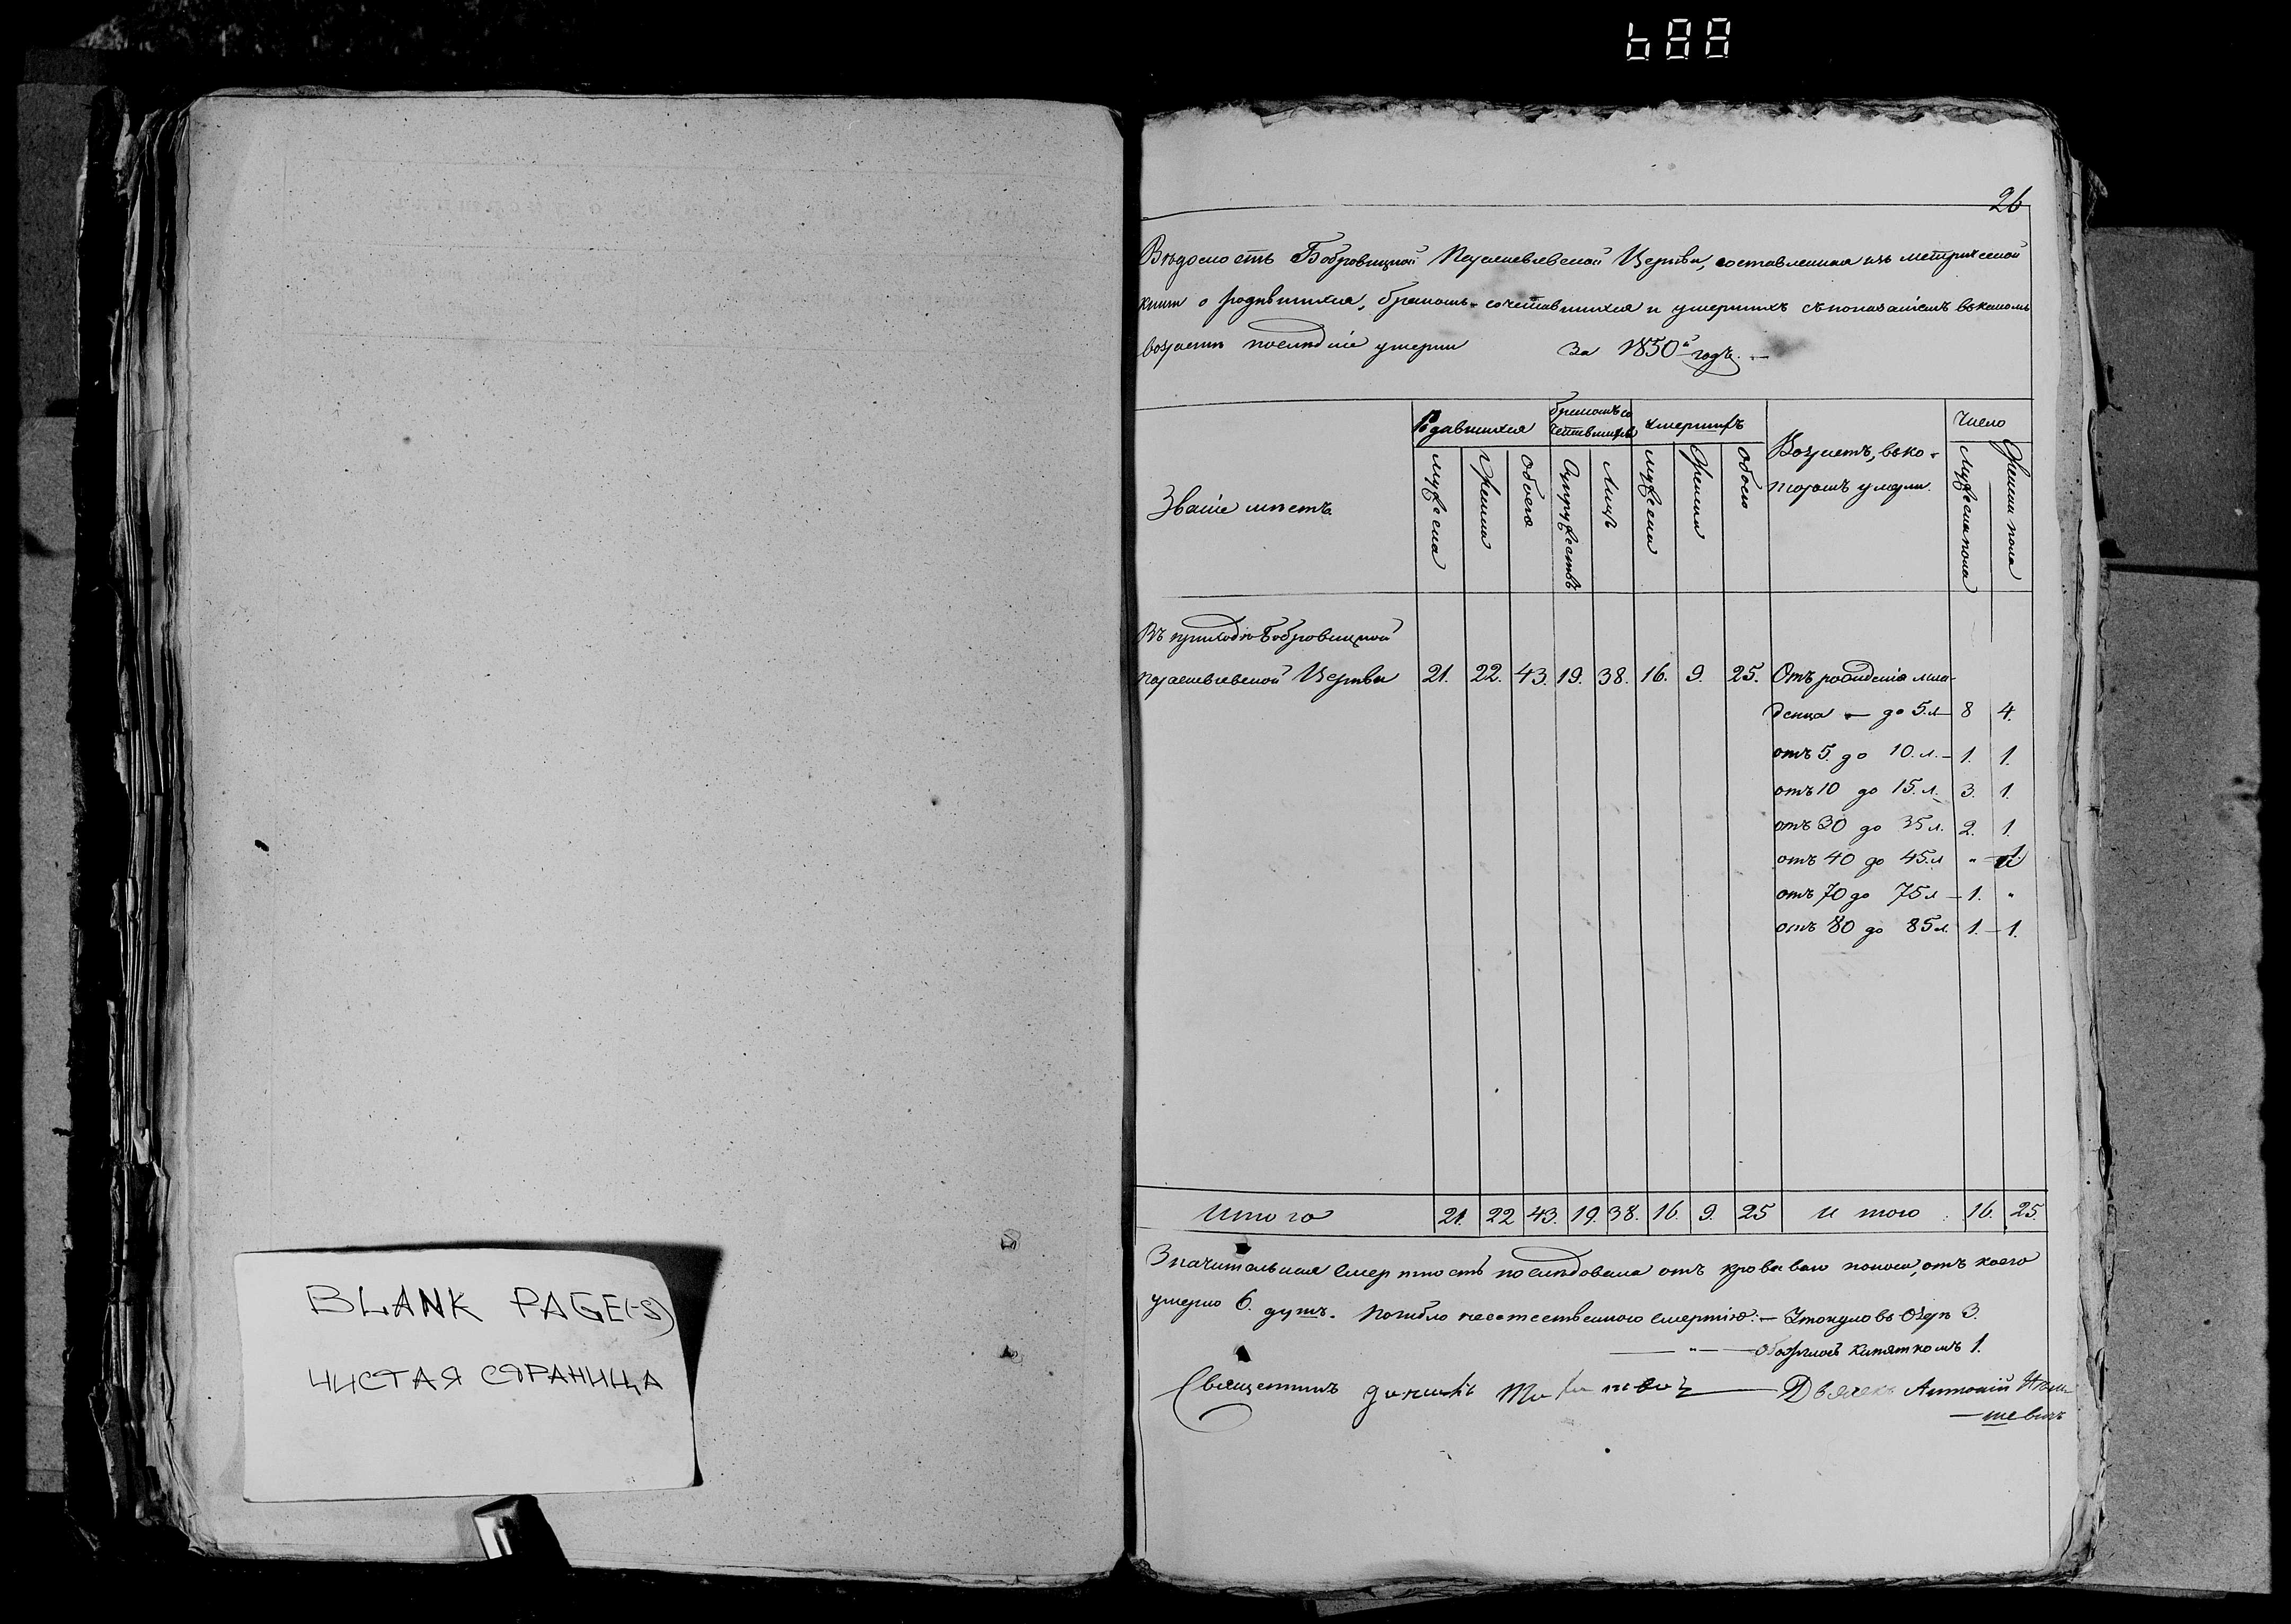 688
26
Вѣдомость Бобровицкой Параскевіевской Церкви, составленная изъ метрической
книги о родившихся, бракомъ сочетавшихся и умершихъ съ показаніемъ въ какомъ
возрастѣ послѣдніе умерли За 1850й годъ. —
Званіе мѣстъ
Родившихся
бракомъ со
четавшихся
Умершихъ
Возрастъ, въ ко-
торомъ умерли.
Число
мужеска
женска
обоего
Супружествъ
Лицъ
мужеска
женска
обоего
мужеска пола
женска пола
Въ приходѣ Бобровицкой
Параскевіевской Церкви 21. 22. 43. 19. 38. 16. 9. 25. Отъ рожденія мла-
денца — до 5.л— 8 4.
отъ 5. до 10.л.— 1. 1.
отъ 10 до 15.л. 3. 1.
отъ 30 до 35л. 2. 1.
отъ 40 до 45.л " 1
отъ 70 до 75л — 1. "
отъ 80 до 85л. 1. — 1.
Итого 21. 22 43. 19. 38. 16. 9. 25 Итого 16. 25.
Значительная смертность послѣдовала отъ кроваваго поноса, отъ коего
умерло 6. душъ. Погибло неестественного смертію: — Утонуло въ Озерѣ 3.
— " — Обожглось кипяткомъ 1.
Священникъ — Дьячекъ Антоній
— шевичъ
BLANK PAGE(-S)
ЧИСТАЯ СТРАНИЦА